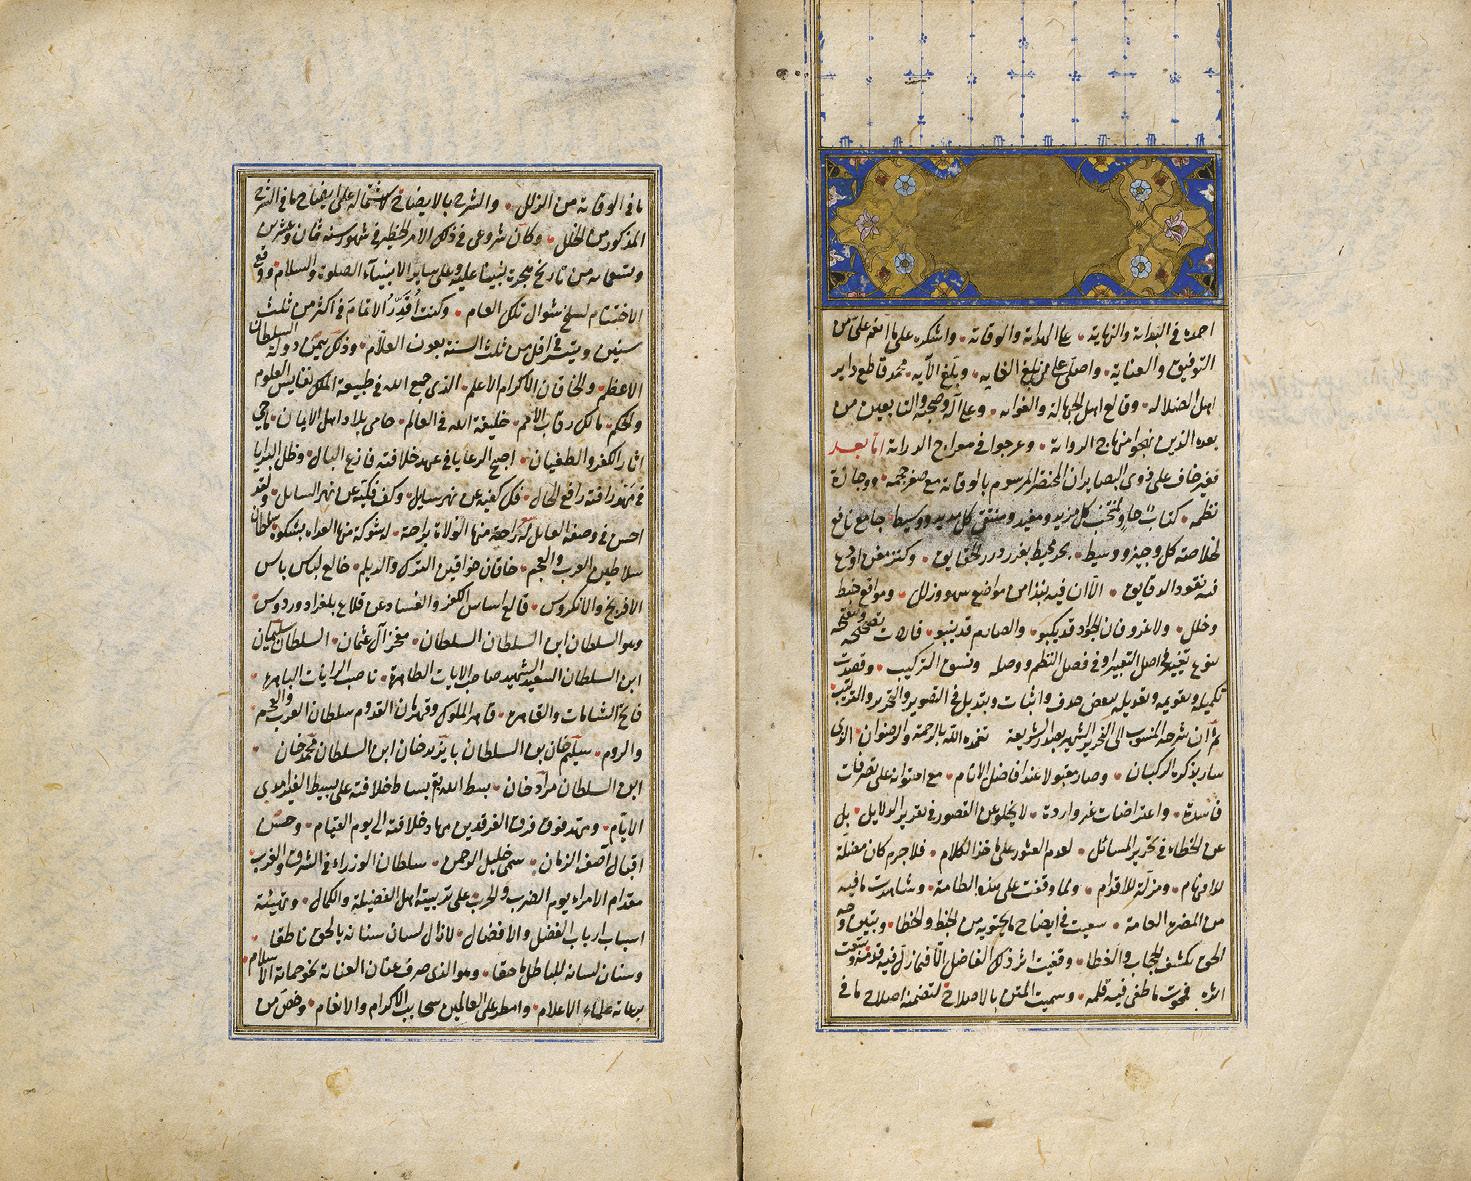 احمده في البداية والنهاية على الهداية والوقاية واشكره على ما انعم علي من
التوفيق والعناية واصلي على من بلغ الغاية وبلغ الآية محمد قاطع دابر
اهل الضلالة وقامع اهل الجهالة والغواية وعلى آله وصحبه والتابعين من
بعده الذين نهجوا منهاج الرواية وعرجوا في معراج الدراية اما بعد
فغير خاف على ذوي البصاير ان المختصر الموسوم بالوقاية مع صغر حجمه ووجازة
نظمه كتاب حاو لمنتخب كل مزيد ومفيد ومنتقى كل مديد ووسيط جامع نافع
لخلاصة كل وجيز ووسيط بحر محيط بغرر درر الحقايق وكنز مغن اودع
فيه نقود الدقايق الا ان فيه نبذا من مواضع سهو وزلل ومواقع خبط
وخلل ولا غرو فان الجواد قد يكبو والصارم قد ينبو فاردت تصحيحه وتنقيحه
بنوع تغيير في اصل التعبير او في فصل النظم ووصله ونسق التركيب وقصدت
تكميله وتقويمه وتعديله ببعض حذف واثبات وتبديل في التصوير والتحرير والترتيب
ثم ان شرحه المنسوب الى النحرير الشهير بصدر الشريعة تغمده الله بالرحمة والرضوان الذي
سار بذكره الركبان وصار مقبولا عند افاضل الانام مع احتوائه على تصرفات
فاسدة واعتراضات غير واردة لا يخلو عن القصور في تقرير الدلايل بل
عن الخطاء في تحرير المسائل لعدم العثور على ما هذا الكلام فلا جرم كان مضلة
للافهام ومزلة للاقدام ولما وقفت على هذه الطامة وشاهدت ما فيه
من المضرة العامة سعيت في ايضاح ما يحتويه من الخبط والخطا وتبيين وجه
الحق بكشف الحجاب والغطا وقفيت اثر ذلك الفاضل الا فيما زل فيه قدمه وتتبعت
اثره فمحوت ما طغى فيه قلمه وسميت المتن بالاصلاح لتضمنه اصلاح ما في
ما في الوقاية من الزلل والشرح بالايضاح لاشتماله على ايضاح ما في الشرح
المذكور من الخلل وكان شروعي في ذلك الامر الخطير في شهور سنة ثمان وعشرين
وتسعمائة من تاريخ هجرة نبينا عليه وعلى سائر الانبياء الصلوة والسلام ووقع
الاختتام لسلخ شوال تلك العام وكنت اقدر الاتمام في اكثر من ثلث
سنين وتيسر في اقل من ثلث السنة بعون العلام وذلك بيمن دولة السلطان
الاعظم والخاقان الاكرم الاعلم الذي جمع الله في طبيعة الملك نفايس العلوم
والحكم مالك رقاب الامم خليفة الله في العالم حامي بلاد اهل الايمان ماحي
اثار الكفر والطغيان اصبح الرعايا في عهد خلافته فارغ البال وظل البرايا
في مهد رافته رافع الحال فكل كفيه عن نهر سايل وكف فكيه عن نهر السايل ولقد
احسن في وصفه القايل له راحة منها الولاة براحة له شوكة منها العداه بشكوة سلطان
سلاطين العرب والعجم خاقان خواقين الترك والديلم خالع لباس باس
الافرنج والانكروس قالع اساس الكفر والفساد عن قلاع بلغراد وردوس
وهو السلطان ابن السلطان السلطان مفخر آل عثمان السلطان سليمان
ابن السلطان السعيد الشهيد صاحب الايات الظاهرة ناصب الرايات الباهرة
فاتح الشامات والقاهرة قاهر الملوك وقهرمان القدوم سلطان العرب والعجم
والروم سليم خان بن السلطان بايزيد خان ابن السلطان محمد خان
ابن السلطان مراد خان بسط الله تعالى بساط خلافته على بسيط الغبراء مدى
الايام ومهد فوق فرق الفرقدين مهاد خلافته الى يوم القيام وحسن
اقبال آصف الزمان سمي خليل الرحمن سلطان الوزراء في الشرق والغرب
مقدام الامراء يوم الضرب والحرب على تربية اهل الفضيلة والكمال وتهيئة
اسباب ارباب الفضل والافضال لا زال لسان سنانه بالحق ناطقا
وسنان لسانه للباطل ماحقا وهو الذي صرف عنان العناية نحو حماية الاسلام
برعاية علماء الاعلام وامطر على العالمين سحايب الاكرام والانعام وخص من